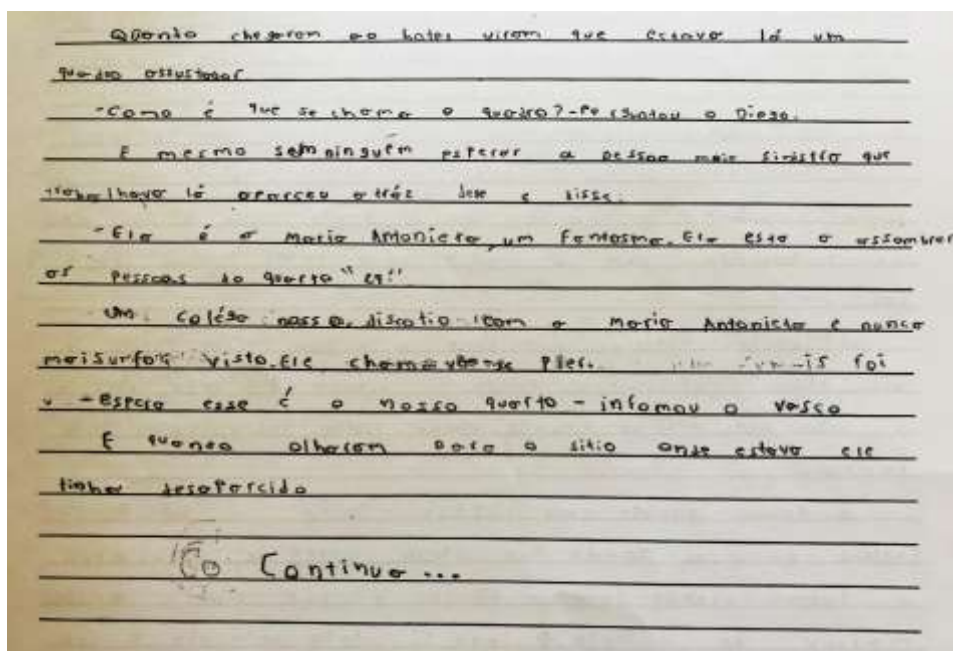 Quando chegaram ao hotel viram que estava lá um
quadro assustador
-Como é que se chama o quadro?-Perguntou o Diogo.
E mesmo sem ninguém esperar a pessoa mais sinistra que
trabalhava lá apareceu atráz dele e disse:
-Ela é a Maria Antonieta, um fantasma. Ela está a assombrar
as pessoas do quarto
Um colega nosso, discutio com a Maria Antonieta e nunca
mais foi visto. Ele chamava-se
-Espera esse é o nosso quarto - infomou o Vasco
E quando olharam para o sitio onde estava ele
tinha desaparcido
Continua...